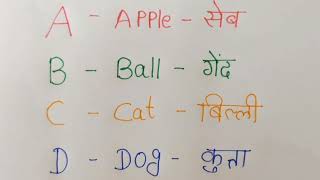 A - APPLE - सेब
B - Ball - गेंद
C - Cat - बिल्ली
D - DOg - कुत्ता